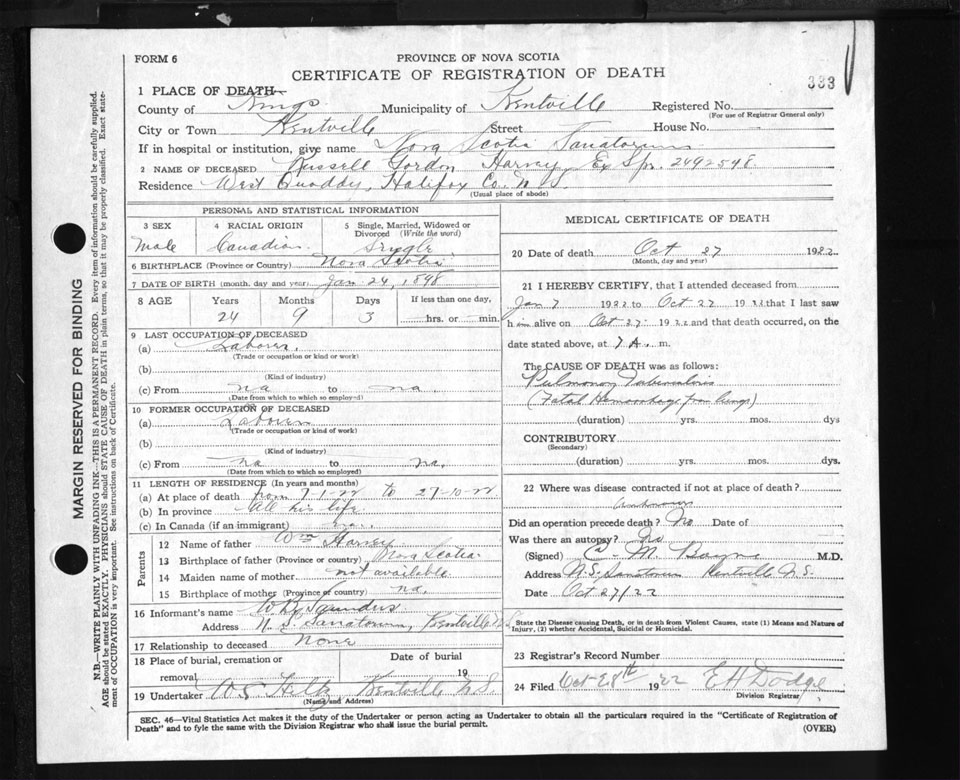 FORM 6
PROVINCE OF NOVA SCOTIA
CERTIFICATE OF REGISTRATION OF DEATH
333
1 PLACE OF DEATH—
County of Kings Municipality of Kentville Registered No.
(For use of Registrar General only)
City or Town Kentville Street House No. —
If in hospital or institution, give name Nova Scotia Sanatorium
2 NAME OF DECEASED Russell Gordon Harvey Ex Spr. 2492548
Residence West Quoddy, Halifax Co. N.S.
(Usual place of abode)
PERSONAL AND STATISTICAL INFORMATION
3 SEX 4 RACIAL ORIGIN 5 Single, Married, Widowed or Divorced (Write the word)
Male Canadian Single
6 BIRTHPLACE (Province or Country) Nova Scotia
7 DATE OF BIRTH (month, day and year) Jan 24, 1898
8 AGE Years Months Days If less than one day,
24 9 3 hrs. or min.
9 LAST OCCUPATION OF DECEASED
(a) Laborer.
(Trade or occupation or kind or work)
(b)
(Kind of industry)
(c) From na to na
(Date from which to which employed)
10 FORMER OCCUPATION OF DECEASED
(a) Laborer
(Trade or occupation or kind of work)
(b)
(Kind of industry)
(c) From na to na.
(Date from which to which so employed)
11 LENGTH OF RESIDENCE (In years and months)
(a) At place of death from 7-1-22 to 27-10-22
(b) In province all his life
(c) In Canada (if an immigrant) na.
Parents
12 Name of father Wm Harvey
13 Birthplace of father (Province or country) Nova Scotia
14 Maiden name of mother not available
15 Birthplace of mother (Province or country) na.
16 Informant's name Saunders
Address N. S. Sanatorium, Kentville N.S.
17 Relationship to deceased None
18 Place of burial, cremation or removal Date of burial 19
19 Undertaker Kentville N.S.
(Name and Address)
MEDICAL CERTIFICATE OF DEATH
20 Date of death Oct 27 1922
(Month, day and year)
21 I HEREBY CERTIFY, that I attended deceased from
Jan 7 1922 to Oct 22 1922 that I last saw
him alive on Oct 27 1922 and that death occurred, on the
date stated above, at 7 A. m.
The CAUSE OF DEATH was as follows:
Pulmonary Tuberculosis
(Fatal Hemorrhage from lungs)
(duration) yrs. mos. dys
CONTRIBUTORY
(Secondary)
(duration) yrs. mos. dys.
22 Where was disease contracted if not at place of death?
unknown
Did an operation precede death? No Date of
Was there an autopsy? No
(Signed) C. M. Bayne M.D.
Address N.S. Sanatorium Kentville N.S.
Date Oct 27/22
State the Disease causing Death, or in death from Violent Causes, state (1) Means and Nature of Injury, (2) whether Accidental, Suicidal or Homicidal.
23 Registrar's Record Number
24 Filed Oct 28th 1922 E H Dodge
Division Registrar
SEC. 46—Vital Statistics Act makes it the duty of the Undertaker or person acting as Undertaker to obtain all the particulars required in the "Certificate of Registration of
Death" and to fyle the same with the Division Registrar who shall issue the burial permit. (OVER)
MARGIN RESERVED FOR BINDING
N.B.—WRITE PLAINLY WITH UNFADING INK—THIS IS A PERMANENT RECORD. Every item of information should be carefully supplied.
AGE should be stated EXACTLY. PHYSICIANS should STATE CAUSE OF DEATH in plain terms, so that it may be properly classified. Exact state-
ment of OCCUPATION is very important. See instructions on back of Certificate.